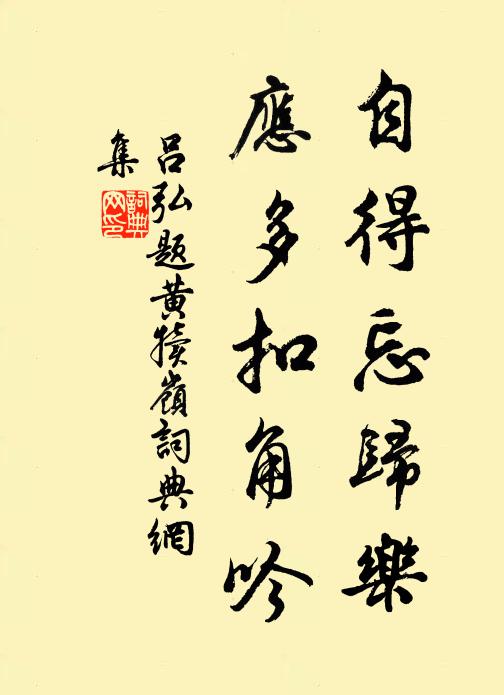 自得忘歸樂
應多扣角吟
呂弘題黄犢嶺詞典網
集
詞典
网印